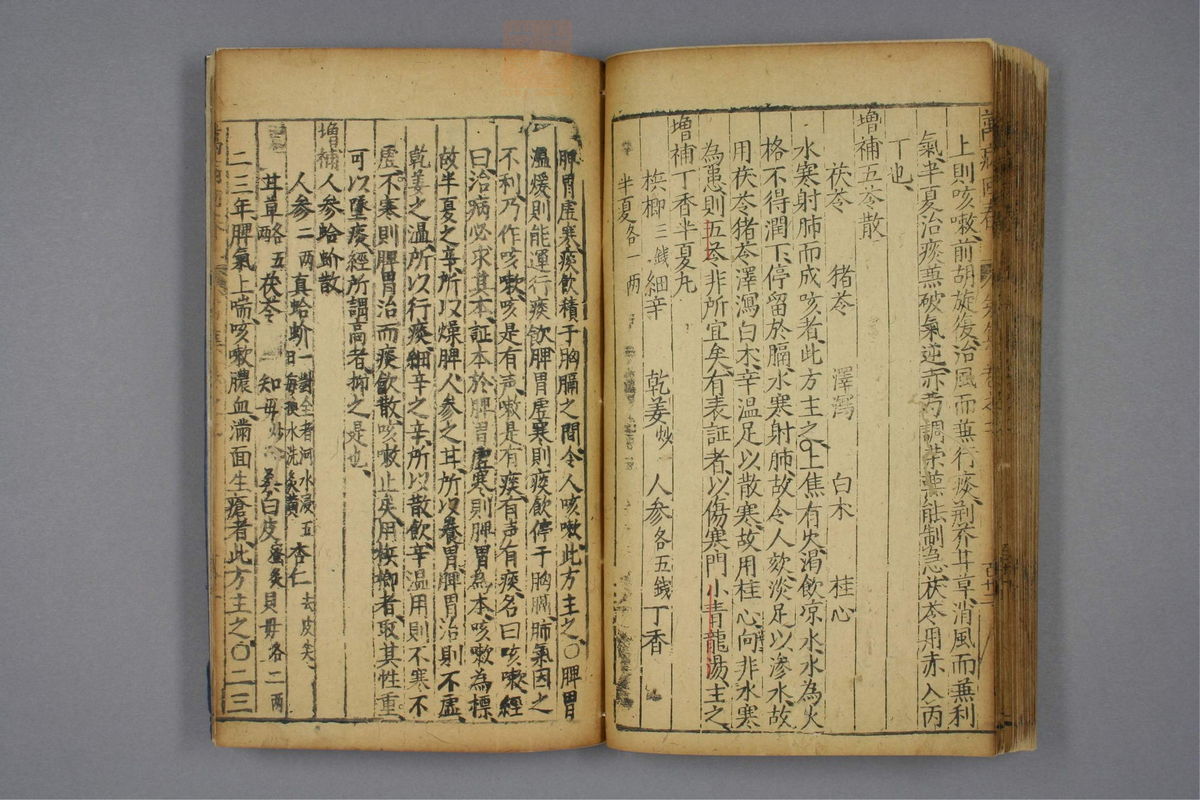 上則咳嗽前胡旋復治風而蕪行痰荊芥甘草消風而蕪利
氣半夏治痰蕪破氣逆赤芍調榮蕪能制急茯苓用赤入丙
丁也
增補五苓散
茯苓 猪苓 澤瀉 白朮 桂心
水寒射肺而成咳者此方主之○上焦有火渴飲凉水水為火
格不得潤下停留於膈水寒射肺故令人欬淡足以滲水故
用茯苓猪苓澤瀉白朮辛溫足以散寒故用桂心向非水寒
為患則五苓非所宜矣有表証者以傷寒門小青龍湯主之
增補丁香半夏丸
檳榔三錢 細辛 乾姜炒 人參各五錢 丁香
半夏各一兩
脾胃虛寒痰飲積于胸膈之間令人咳嗽此方主之○脾胃
溫煖則能運行痰飲脾胃虛寒則痰飲停于胸膈肺氣因之
不利乃作咳嗽咳是有声嗽是有痰有声有痰名曰咳嗽經
曰治病必求其本証本於脾胃虛寒則脾胃為本咳嗽為標
故半夏之辛所以燥脾人參之甘所以養胃脾胃治則不虛
乾姜之溫所以行痰細辛之辛所以散飲辛溫用則不寒不
虛不寒則脾胃治而痰飲散咳嗽止矣用檳榔者取其性重
可以墜痰經所謂高者抑之是也
增補人參蛤蚧散
人參二兩 真蛤蚧一對全者河水浸五日每換水洗炙黃 杏仁去皮尖
甘草各五兩 茯苓 知母炒 桑白皮蜜炙 貝母各二兩
二三年脾氣上喘咳嗽膿血滿面生瘡者此方主之○二三